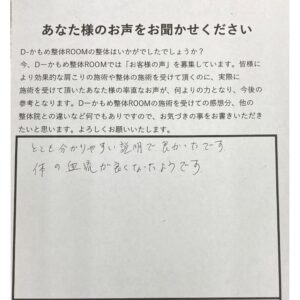 あなた様のお声をお聞かせください
D-かもめ整体ROOMの整体はいかがでしたでしょうか？
今、D－かもめ整体ROOMでは「お客様の声」を募集しています。皆様に
より効果的な肩こりの施術や整体の施術を受けて頂くのに、実際に
施術を受けて頂いたあなた様の率直なお声が、何よりの力となり、今後の
参考となります。D－かもめ整体ROOMの施術を受けての感想分、他の
整体院との違いなど何でもありですので、お気づきの事をお書きいただき
たいと思います。よろしくお願いいたします。
とても分かりやすい説明で良かったです
体の血流が良くなったようです